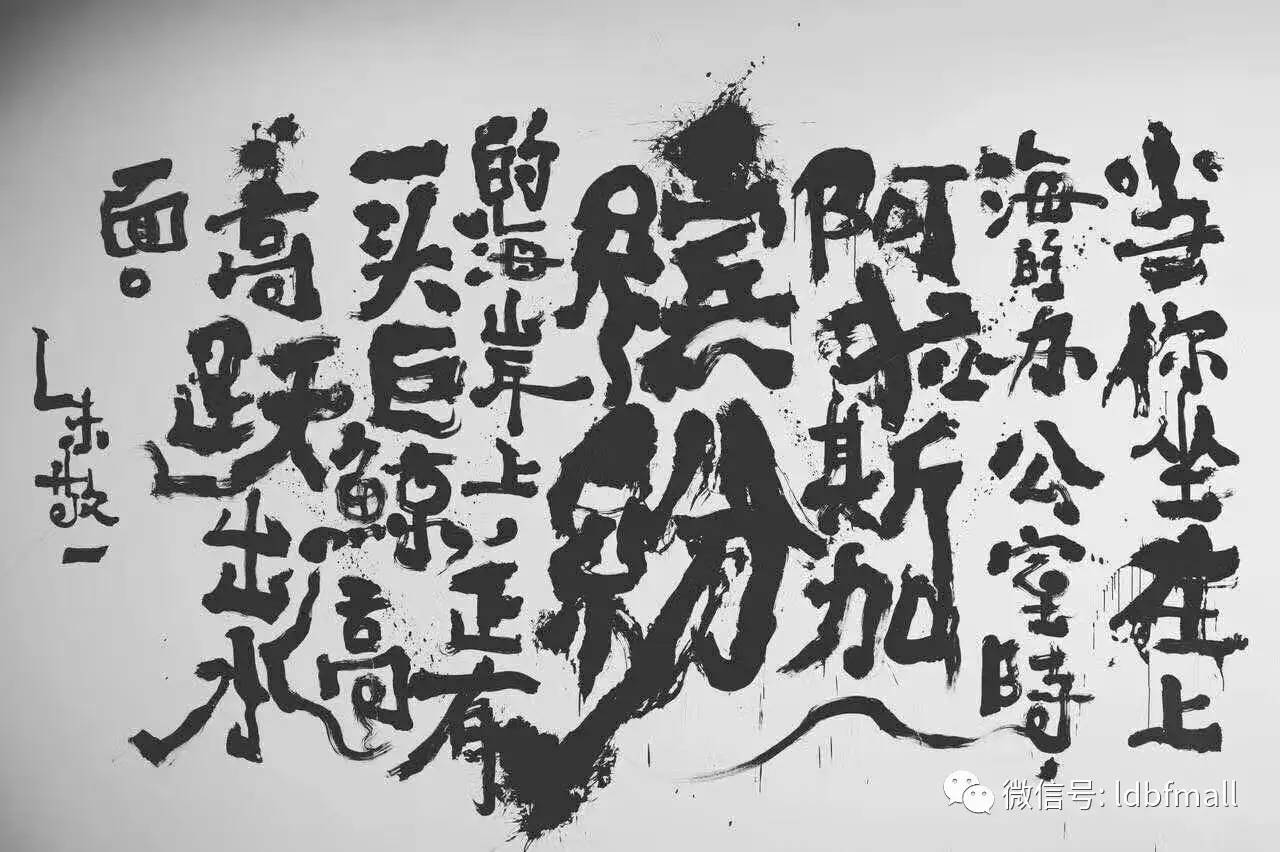 当你坐在上
海的办公室時，
阿拉斯加
缤纷
的海岸上，正有
一头巨鲸高
高跃出水
面。
朱敬一
微信号: ldbfmall